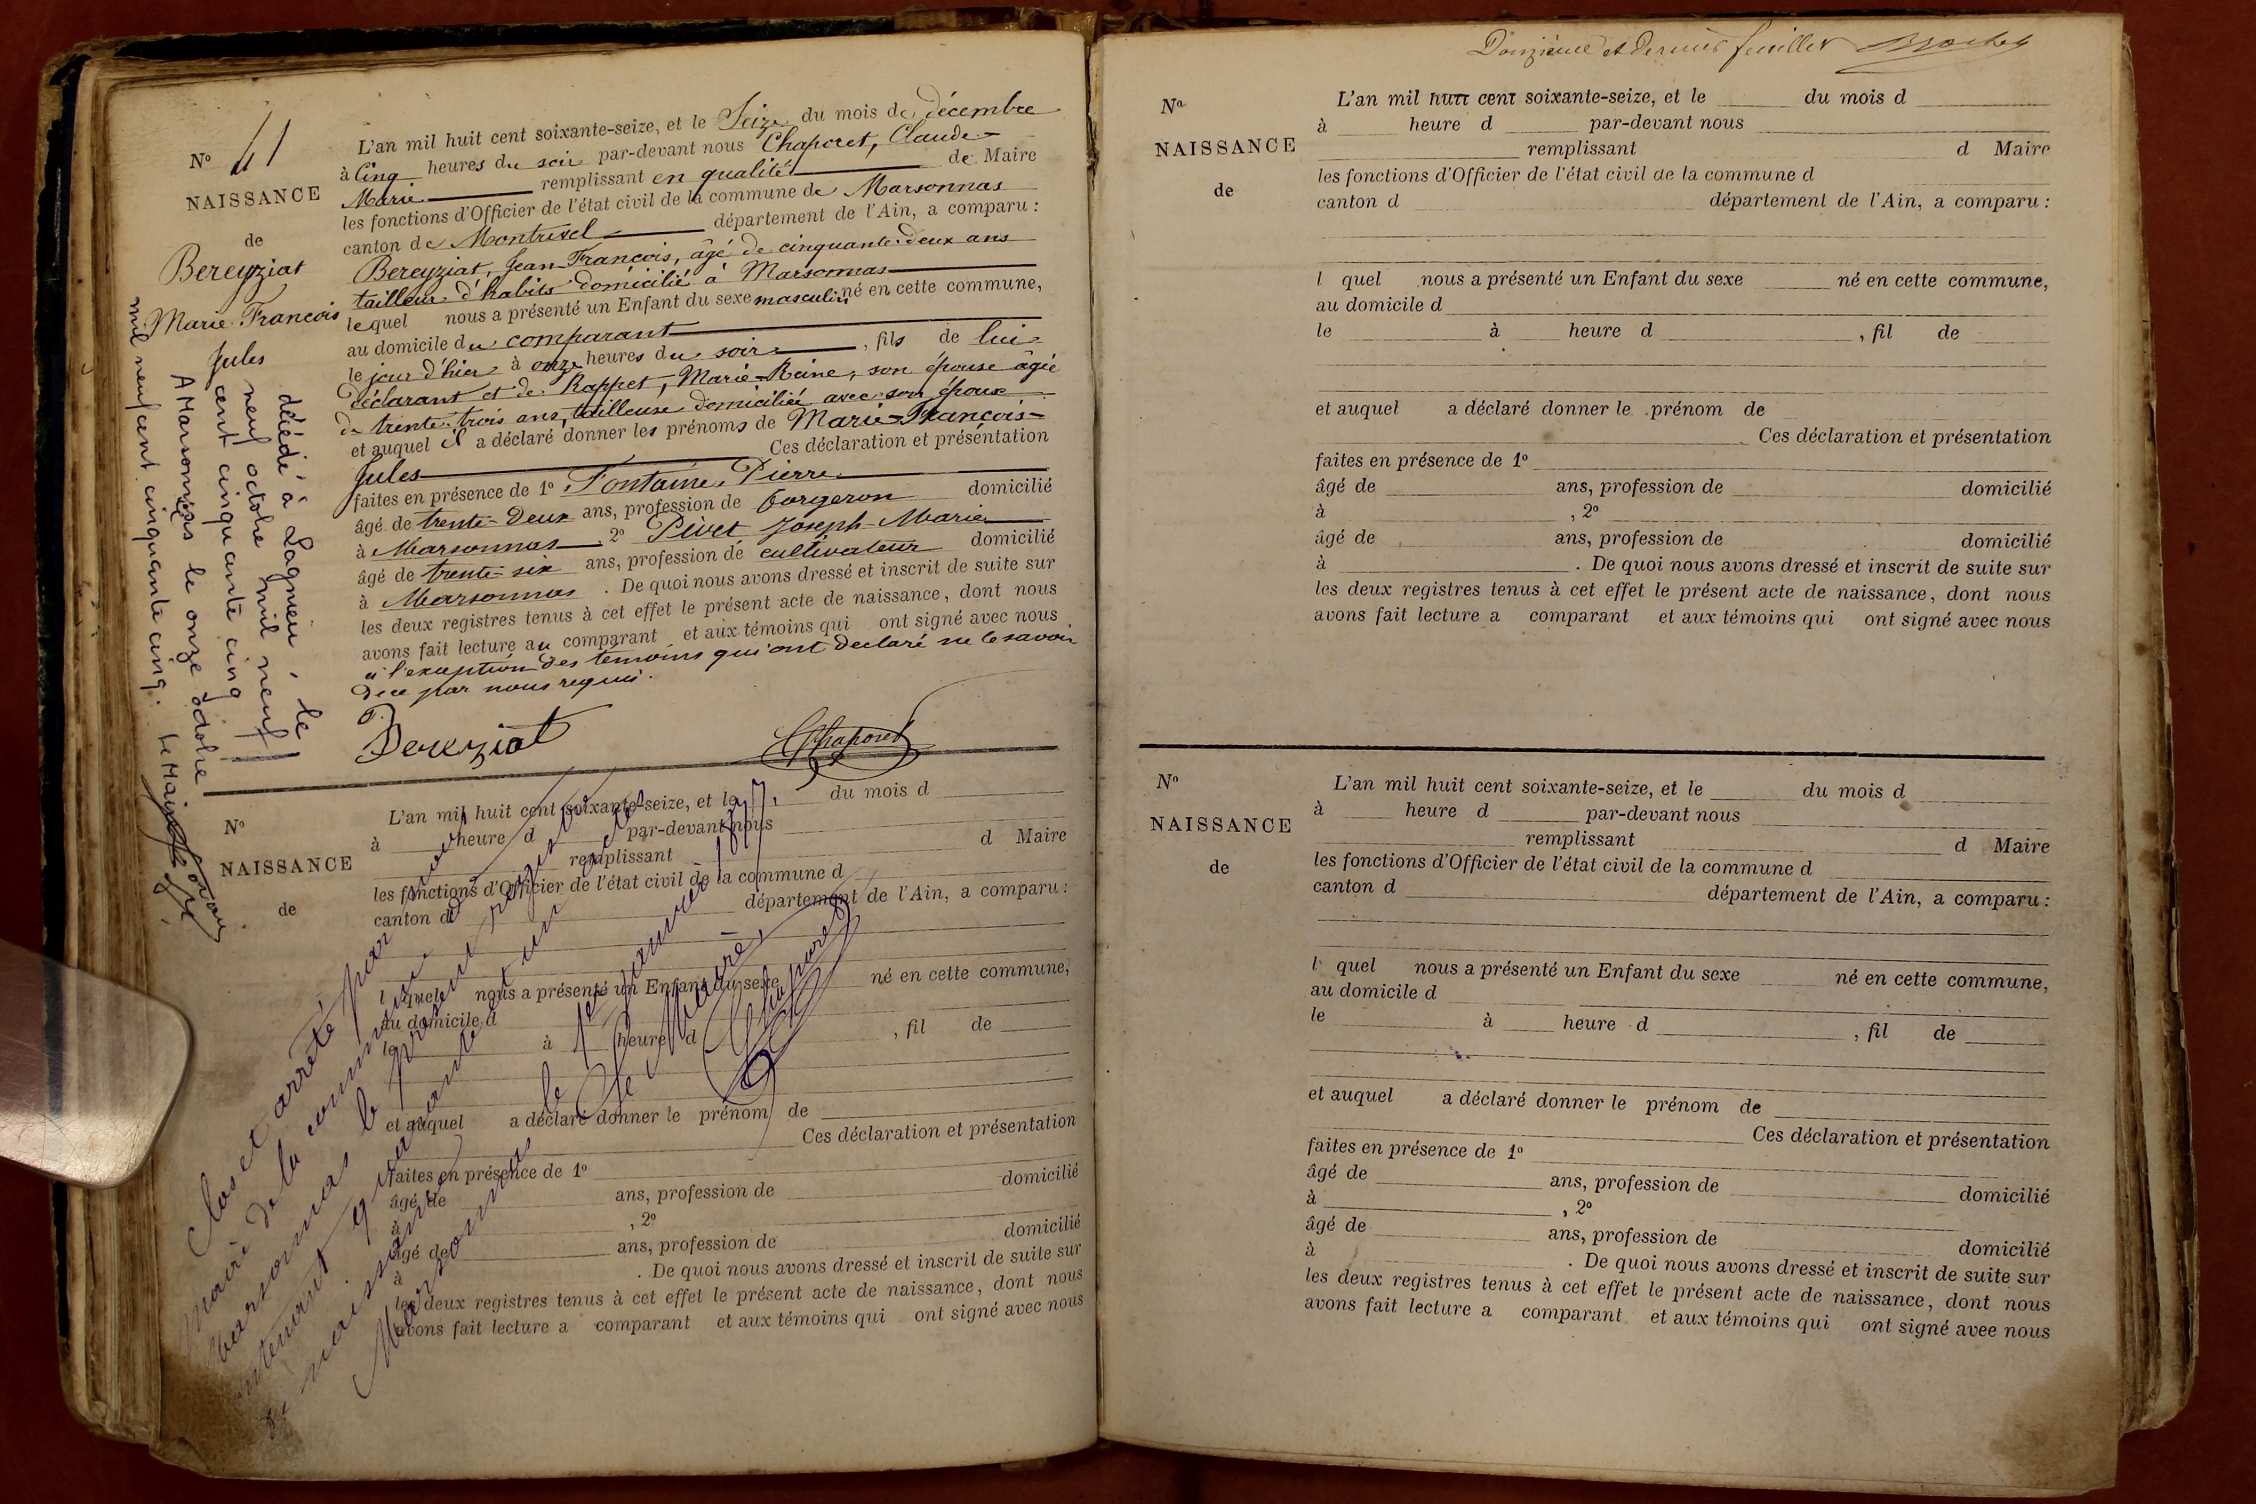 Nº 41
NAISSANCE
de
Bereyziat
Marie François
Jules
L'an mil huit cent soixante-seize, et le Seize du mois de décembre
à Cinq heures du soir par-devant nous Chaporet, Claude
Marie remplissant en qualité de Maire
les fonctions d'Officier de l'état civil de la commune de Marsonnas
canton de Montrevel département de l'Ain, a comparu :
Bereyziat, Jean-François, âgé de cinquante-deux ans
tailleur d'habits domicilié à Marsonnas
lequel nous a présenté un Enfant du sexe masculin né en cette commune,
au domicile du comparant
le jour d'hier à onze heures du soir , fils de lui
déclarant et de Rappet, Marie-Reine, son épouse âgée
de trente-trois ans, tailleuse domiciliée avec son époux
et auquel il a déclaré donner les prénoms de Marie-François-
Jules Ces déclaration et présentation
faites en présence de 1º Fontaine, Pierre
âgé de trente-deux ans, profession de forgeron domicilié
à Marsonnas , 2º Pivet Joseph-Marie
âgé de trente-six ans, profession de cultivateur domicilié
à Marsonnas . De quoi nous avons dressé et inscrit de suite sur
les deux registres tenus à cet effet le présent acte de naissance, dont nous
avons fait lecture au comparant et aux témoins qui ont signé avec nous
à l'exception des témoins qui ont déclaré ne le savoir
de ce par nous requis.
Bereyziat
Chaporet
décédé à Lagnieu, le
neuf octobre mil neuf
cent cinquante cinq
A Marsonnas le onze octobre
mil neuf cent cinquante cinq.
Le Maire
Nº
NAISSANCE
de
L'an mil huit cent soixante-seize, et le du mois d
à heure d par-devant nous
remplissant d Maire
les fonctions d'Officier de l'état civil de la commune d
canton d département de l'Ain, a comparu :
l quel nous a présenté un Enfant du sexe né en cette commune,
au domicile d
le à heure d , fil de
et auquel a déclaré donner le prénom de
Ces déclaration et présentation
faites en présence de 1º
âgé de ans, profession de domicilié
à , 2º
âgé de ans, profession de domicilié
à . De quoi nous avons dressé et inscrit de suite sur
les deux registres tenus à cet effet le présent acte de naissance, dont nous
avons fait lecture a comparant et aux témoins qui ont signé avec nous
Clos et arrêté par nous
maire de la commune de
Marsonnas le présent registre
contenant quarante et un actes
de naissance
Marsonnas le 1er janvier 1877.
Le Maire,
Chaporet
Douzième et dernier feuillet
Nº
NAISSANCE
de
L'an mil huit cent soixante-seize, et le du mois d
à heure d par-devant nous
remplissant d Maire
les fonctions d'Officier de l'état civil de la commune d
canton d département de l'Ain, a comparu :
l quel nous a présenté un Enfant du sexe né en cette commune,
au domicile d
le à heure d , fil de
et auquel a déclaré donner le prénom de
Ces déclaration et présentation
faites en présence de 1º
âgé de ans, profession de domicilié
à , 2º
âgé de ans, profession de domicilié
à . De quoi nous avons dressé et inscrit de suite sur
les deux registres tenus à cet effet le présent acte de naissance, dont nous
avons fait lecture a comparant et aux témoins qui ont signé avec nous
Nº
NAISSANCE
de
L'an mil huit cent soixante-seize, et le du mois d
à heure d par-devant nous
remplissant d Maire
les fonctions d'Officier de l'état civil de la commune d
canton d département de l'Ain, a comparu :
l quel nous a présenté un Enfant du sexe né en cette commune,
au domicile d
le à heure d , fil de
et auquel a déclaré donner le prénom de
Ces déclaration et présentation
faites en présence de 1º
âgé de ans, profession de domicilié
à , 2º
âgé de ans, profession de domicilié
à . De quoi nous avons dressé et inscrit de suite sur
les deux registres tenus à cet effet le présent acte de naissance, dont nous
avons fait lecture a comparant et aux témoins qui ont signé avec nous